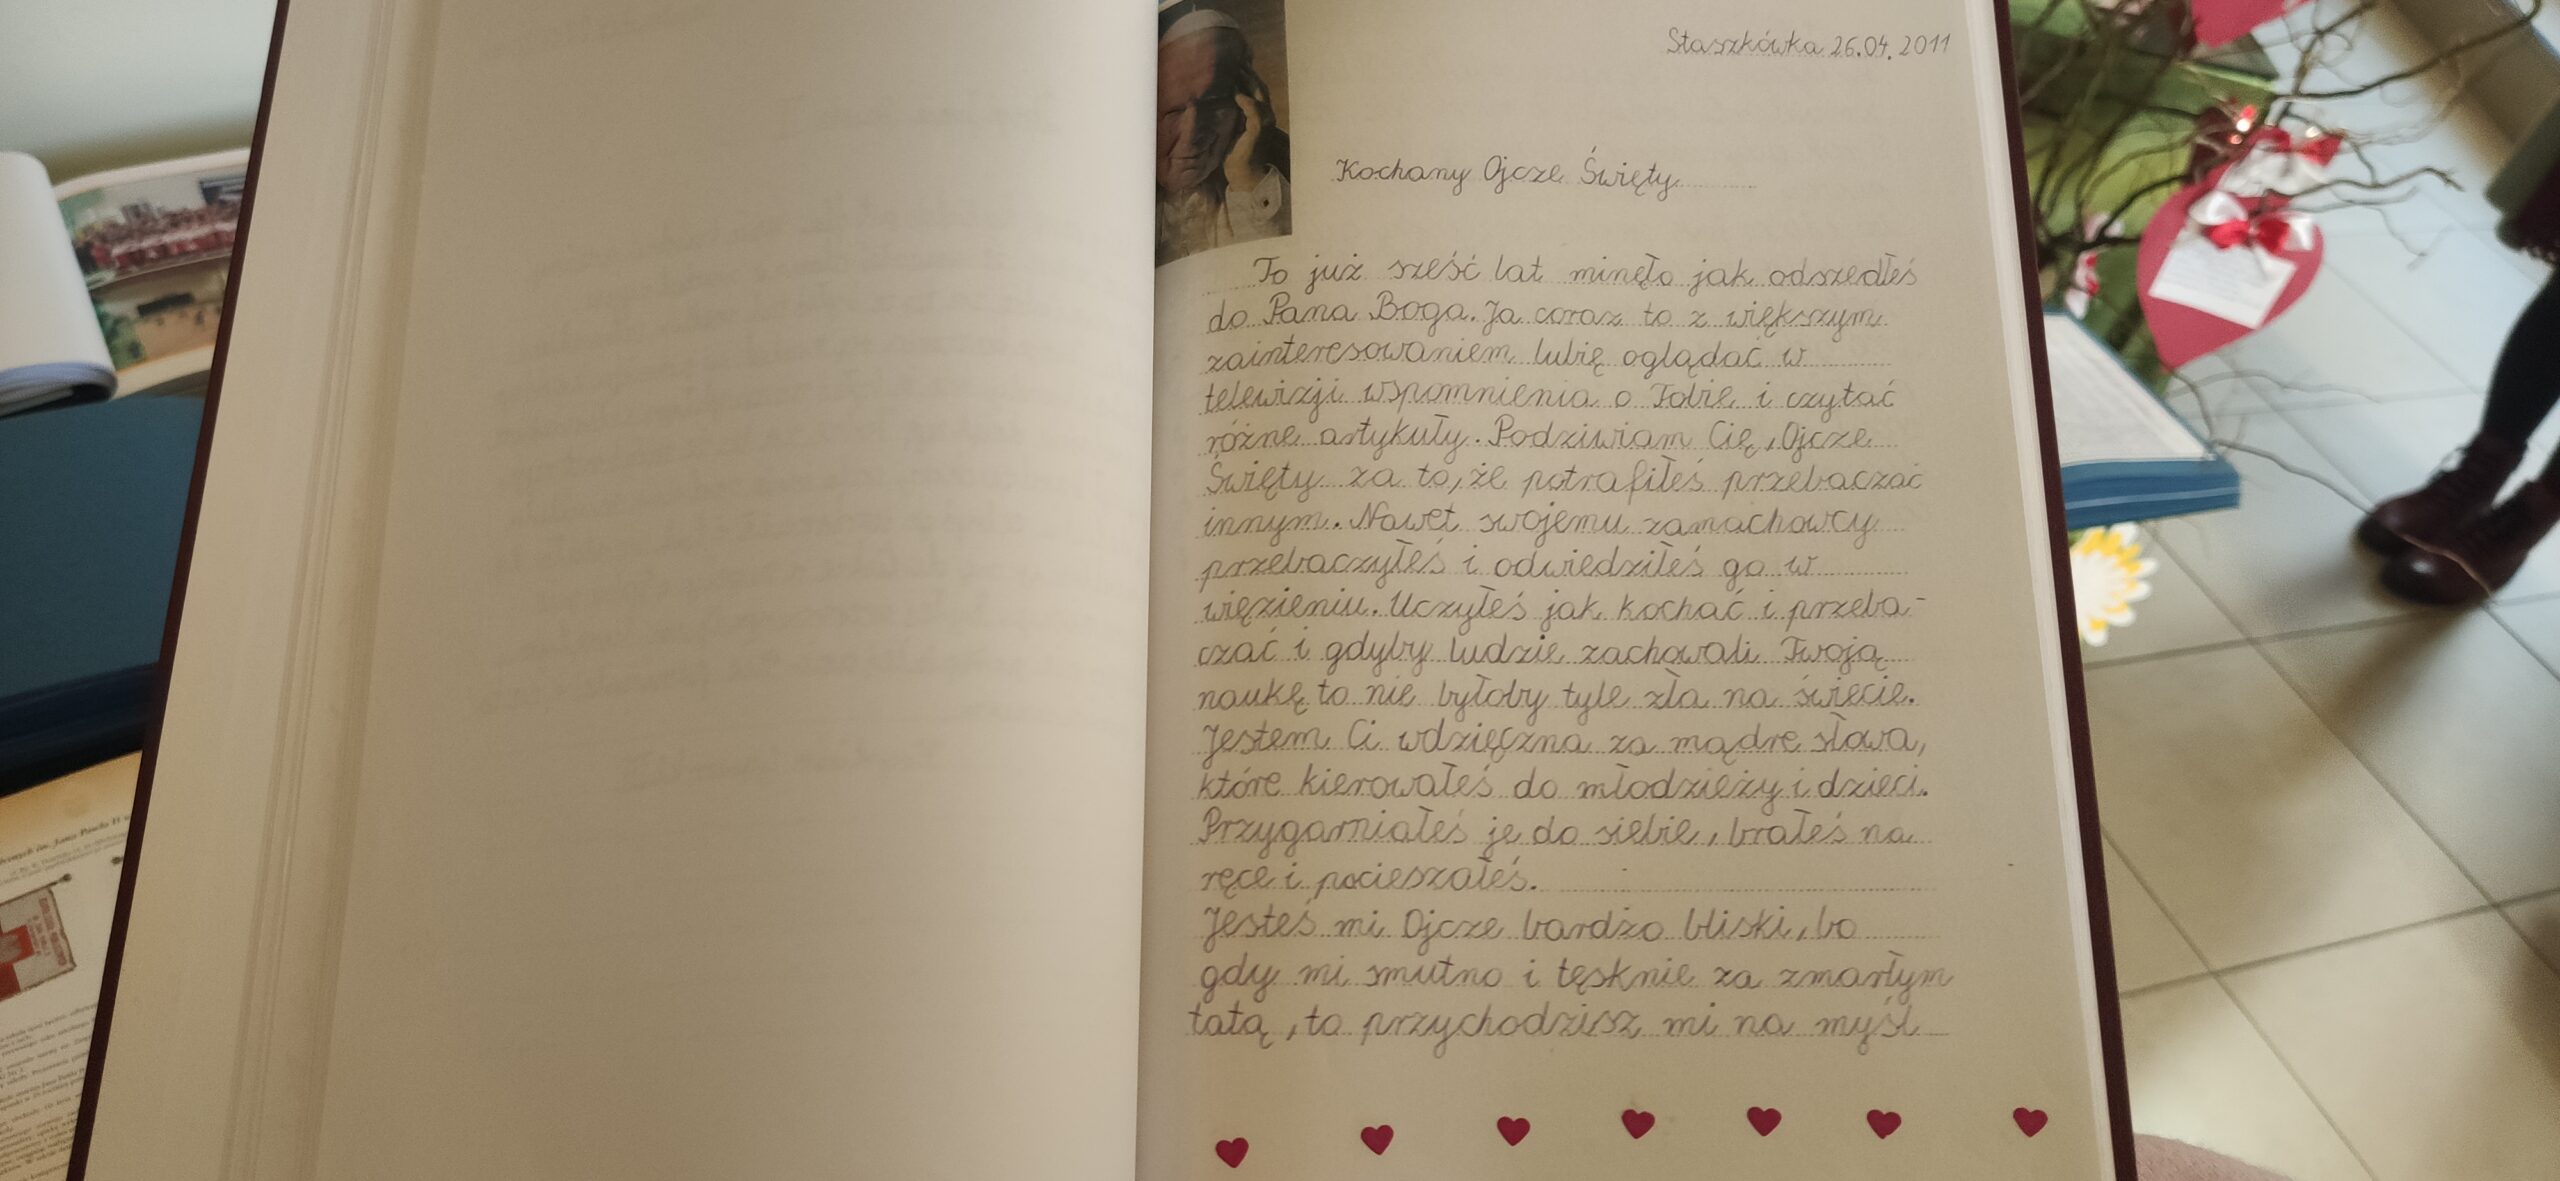 Staszkówka 26.04.2011
Kochany Ojcze Święty
To już sześć lat minęło jak odszedłeś
do Pana Boga. Ja coraz to z większym
zainteresowaniem lubię oglądać w
telewizji wspomnienia o Tobie i czytać
różne artykuły. Podziwiam Cię, Ojcze
Święty za to, że potrafiłeś przebaczać
innym. Nawet swojemu zamachowcy
przebaczyłeś i odwiedziłeś go w
więzieniu. Uczyłeś jak kochać i przeba-
czać i gdyby ludzie zachowali Twoją
naukę to nie byłoby tyle zła na świecie.
Jestem Ci wdzięczna za mądre słowa,
które kierowałeś do młodzieży i dzieci.
Przygarniałeś je do siebie, brałeś na
ręce i pocieszałeś.
Jesteś mi Ojcze bardzo bliski, bo
gdy mi smutno i tęsknie za zmarłym
tatą, to przychodzisz mi na myśl